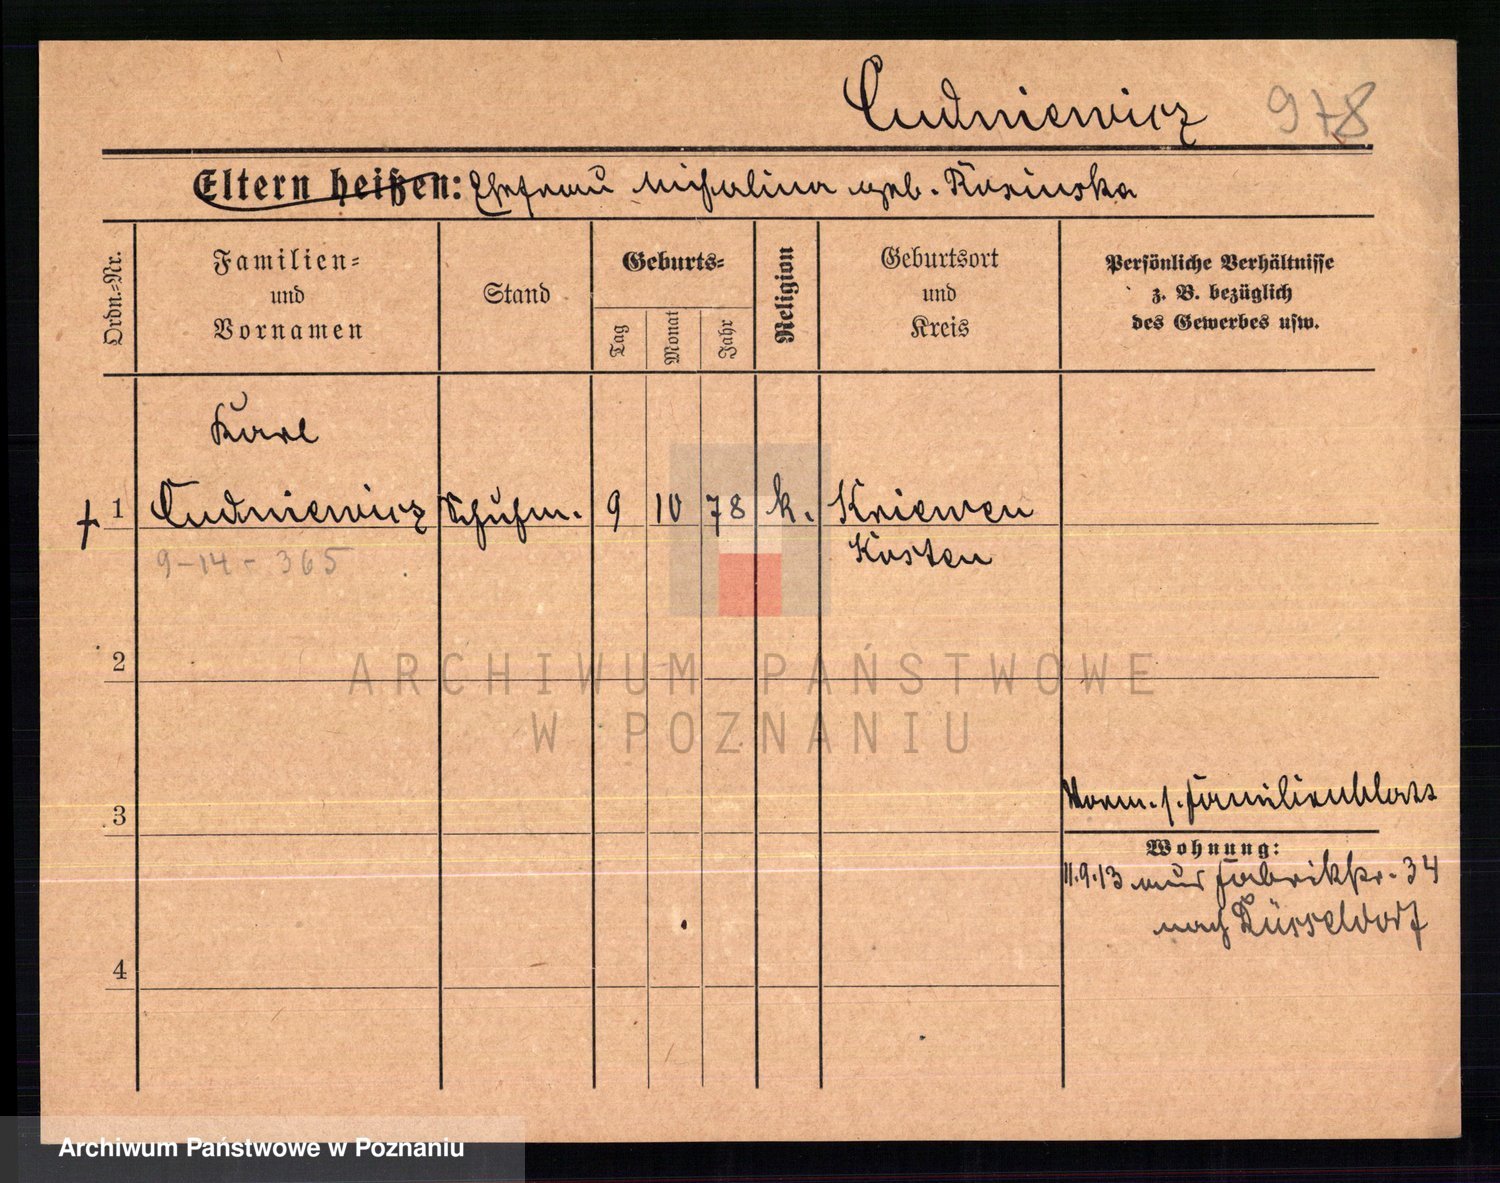 Cudniewicz 978
Eltern heißen: Ehefrau Michalina geb. Rosinska
Ordn.-Nr.
Familien-
und
Vornamen
Stand
Geburts-
Tag
Monat
Jahr
Religion
Geburtsort
und
Kreis
Persönliche Verhältnisse
z. B. bezüglich
des Gewerbes usw.
Karl
1 Cudniewicz Schuhm. 9 10 78 k. Kriewen
9-14-365 Kosten
2
ARCHIWUM PAŃSTWOWE
W POZNANIU
Vorm. s. Familienblatt
3
Wohnung:
11.9.13 aus Fabrikstr. 34
nach Düsseldorf
4
Archiwum Państwowe w Poznaniu